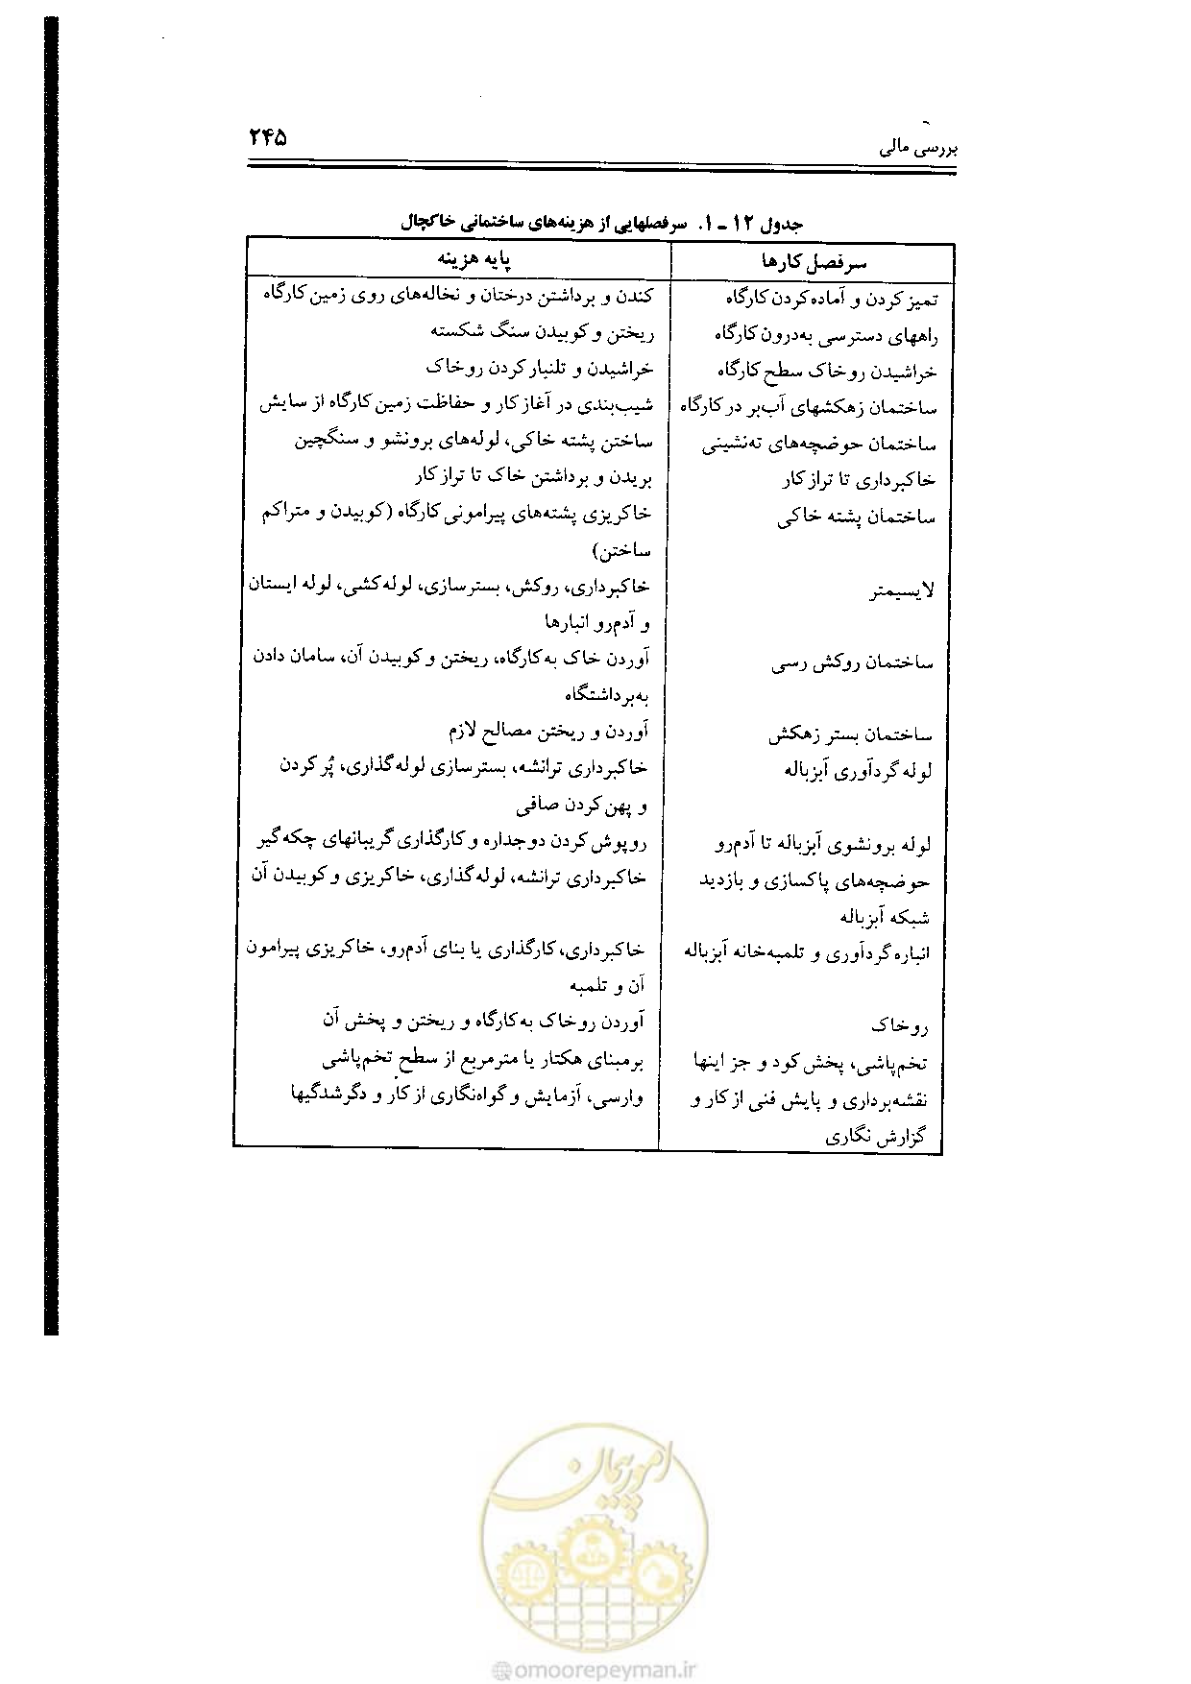 بررسی مالی
۲۴۵
جدول ۱۲ ـ ۱. سرفصلهایی از هزینه‌های ساختمانی خاکچال
سرفصل کارها
پایه هزینه
تمیز کردن و آماده‌کردن کارگاه
کندن و برداشتن درختان و نخاله‌های روی زمین کارگاه
راههای دسترسی به‌درون کارگاه
ریختن و کوبیدن سنگ شکسته
خراشیدن روخاک سطح کارگاه
خراشیدن و تلنبار کردن روخاک
ساختمان زهکشهای آب‌بر در کارگاه
شیب‌بندی در آغاز کار و حفاظت زمین کارگاه از سایش
ساختمان حوضچه‌های ته‌نشینی
ساختن پشته خاکی، لوله‌های برونشو و سنگچین
خاکبرداری تا تراز کار
بریدن و برداشتن خاک تا تراز کار
ساختمان پشته خاکی
خاکریزی پشته‌های پیرامونی کارگاه (کوبیدن و متراکم
ساختن)
لایسیمتر
خاکبرداری، روکش، بسترسازی، لوله‌کشی، لوله ایستان
و آدم‌رو انبارها
ساختمان روکش رسی
آوردن خاک به‌کارگاه، ریختن و کوبیدن آن، سامان دادن
به‌برداشتگاه
ساختمان بستر زهکش
آوردن و ریختن مصالح لازم
لوله گردآوری آبزباله
خاکبرداری ترانشه، بسترسازی لوله‌گذاری، پُر کردن
و پهن کردن صافی
لوله برونشوی آبزباله تا آدم‌رو
روپوش کردن دوجداره و کارگذاری گریبانهای چکه‌گیر
حوضچه‌های پاکسازی و بازدید
شبکه آبزباله
خاکبرداری ترانشه، لوله‌گذاری، خاکریزی و کوبیدن آن
انباره گردآوری و تلمبه‌خانه آبزباله
خاکبرداری، کارگذاری یا بنای آدم‌رو، خاکریزی پیرامون
آن و تلمبه
روخاک
آوردن روخاک به‌کارگاه و ریختن و پخش آن
تخم‌پاشی، پخش کود و جز اینها
برمبنای هکتار یا مترمربع از سطح تخم‌پاشی
نقشه‌برداری و پایش فنی از کار و
گزارش نگاری
وارسی، آزمایش و گواه‌نگاری از کار و دگرشدگیها
امور پیمان
@omoorepeyman.ir